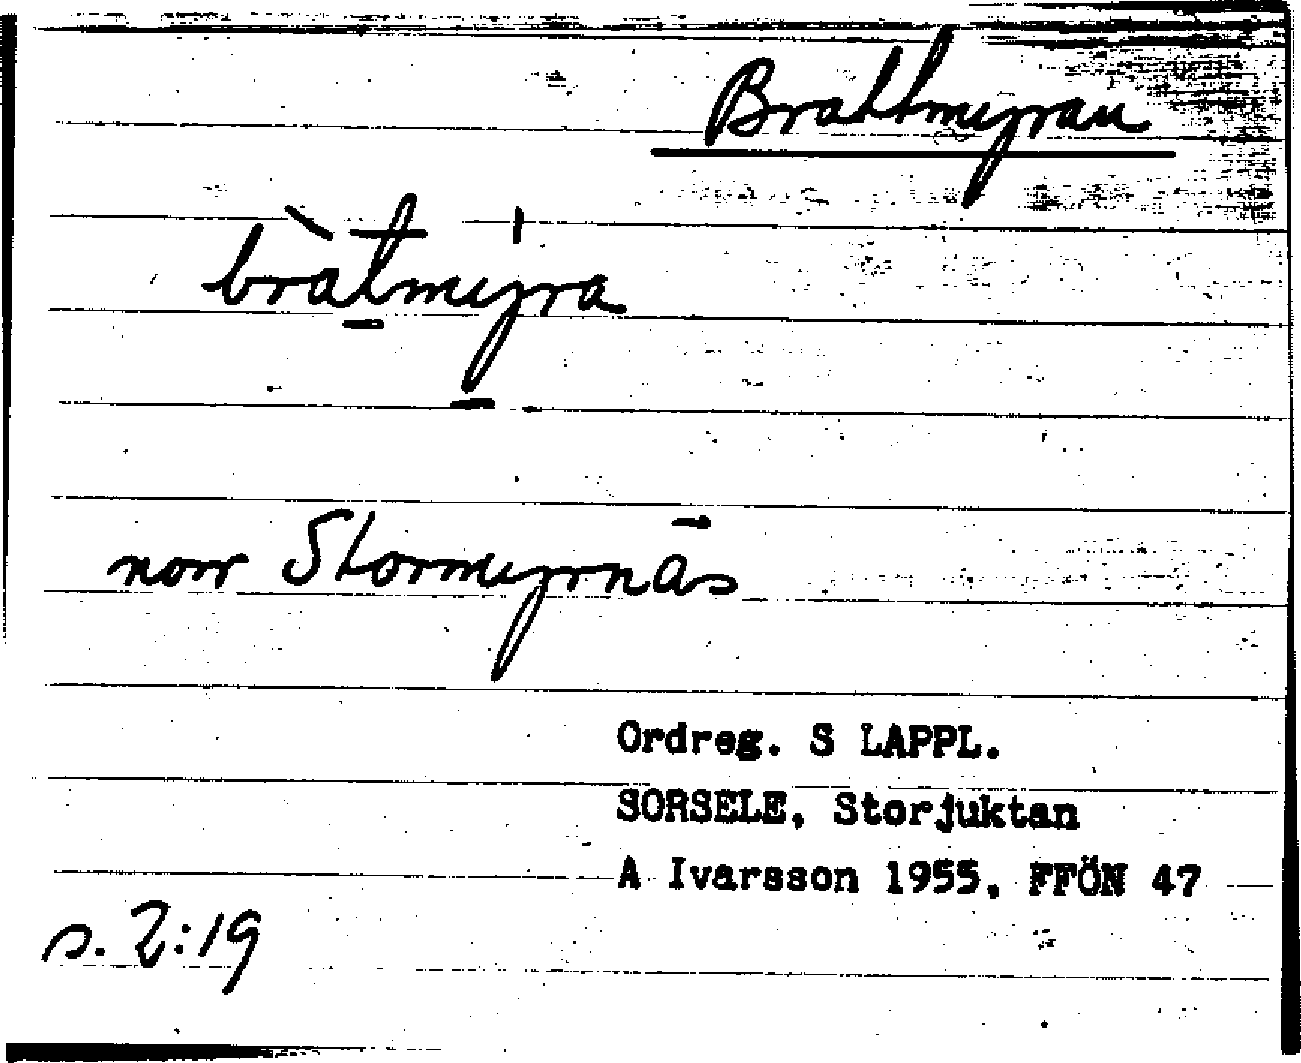 Brattmyran
bràt̠my̠̍ra
norr Stormyrnäs
Ordreg. S LAPPL.
SORSELE, Storjuktan
A Ivarsson 1955, FFÖN 47
s. 2:19